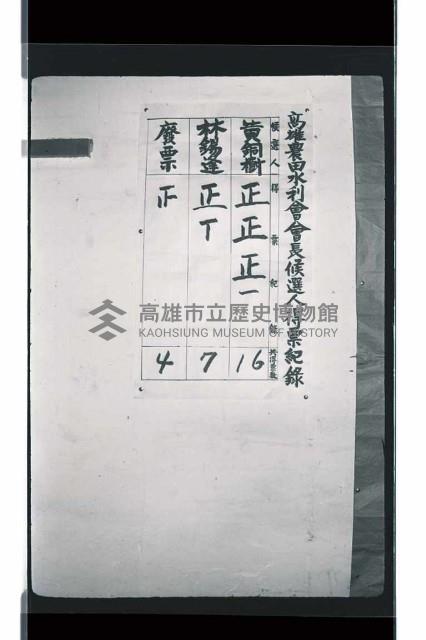 高雄農田水利會會長候選人得票紀錄
候選人 得票紀錄 共得票數
黃銅樹 正正正一 16
林錫達 正丅 7
廢票 正 4
高雄市立歷史博物館
KAOHSIUNG MUSEUM OF HISTORY